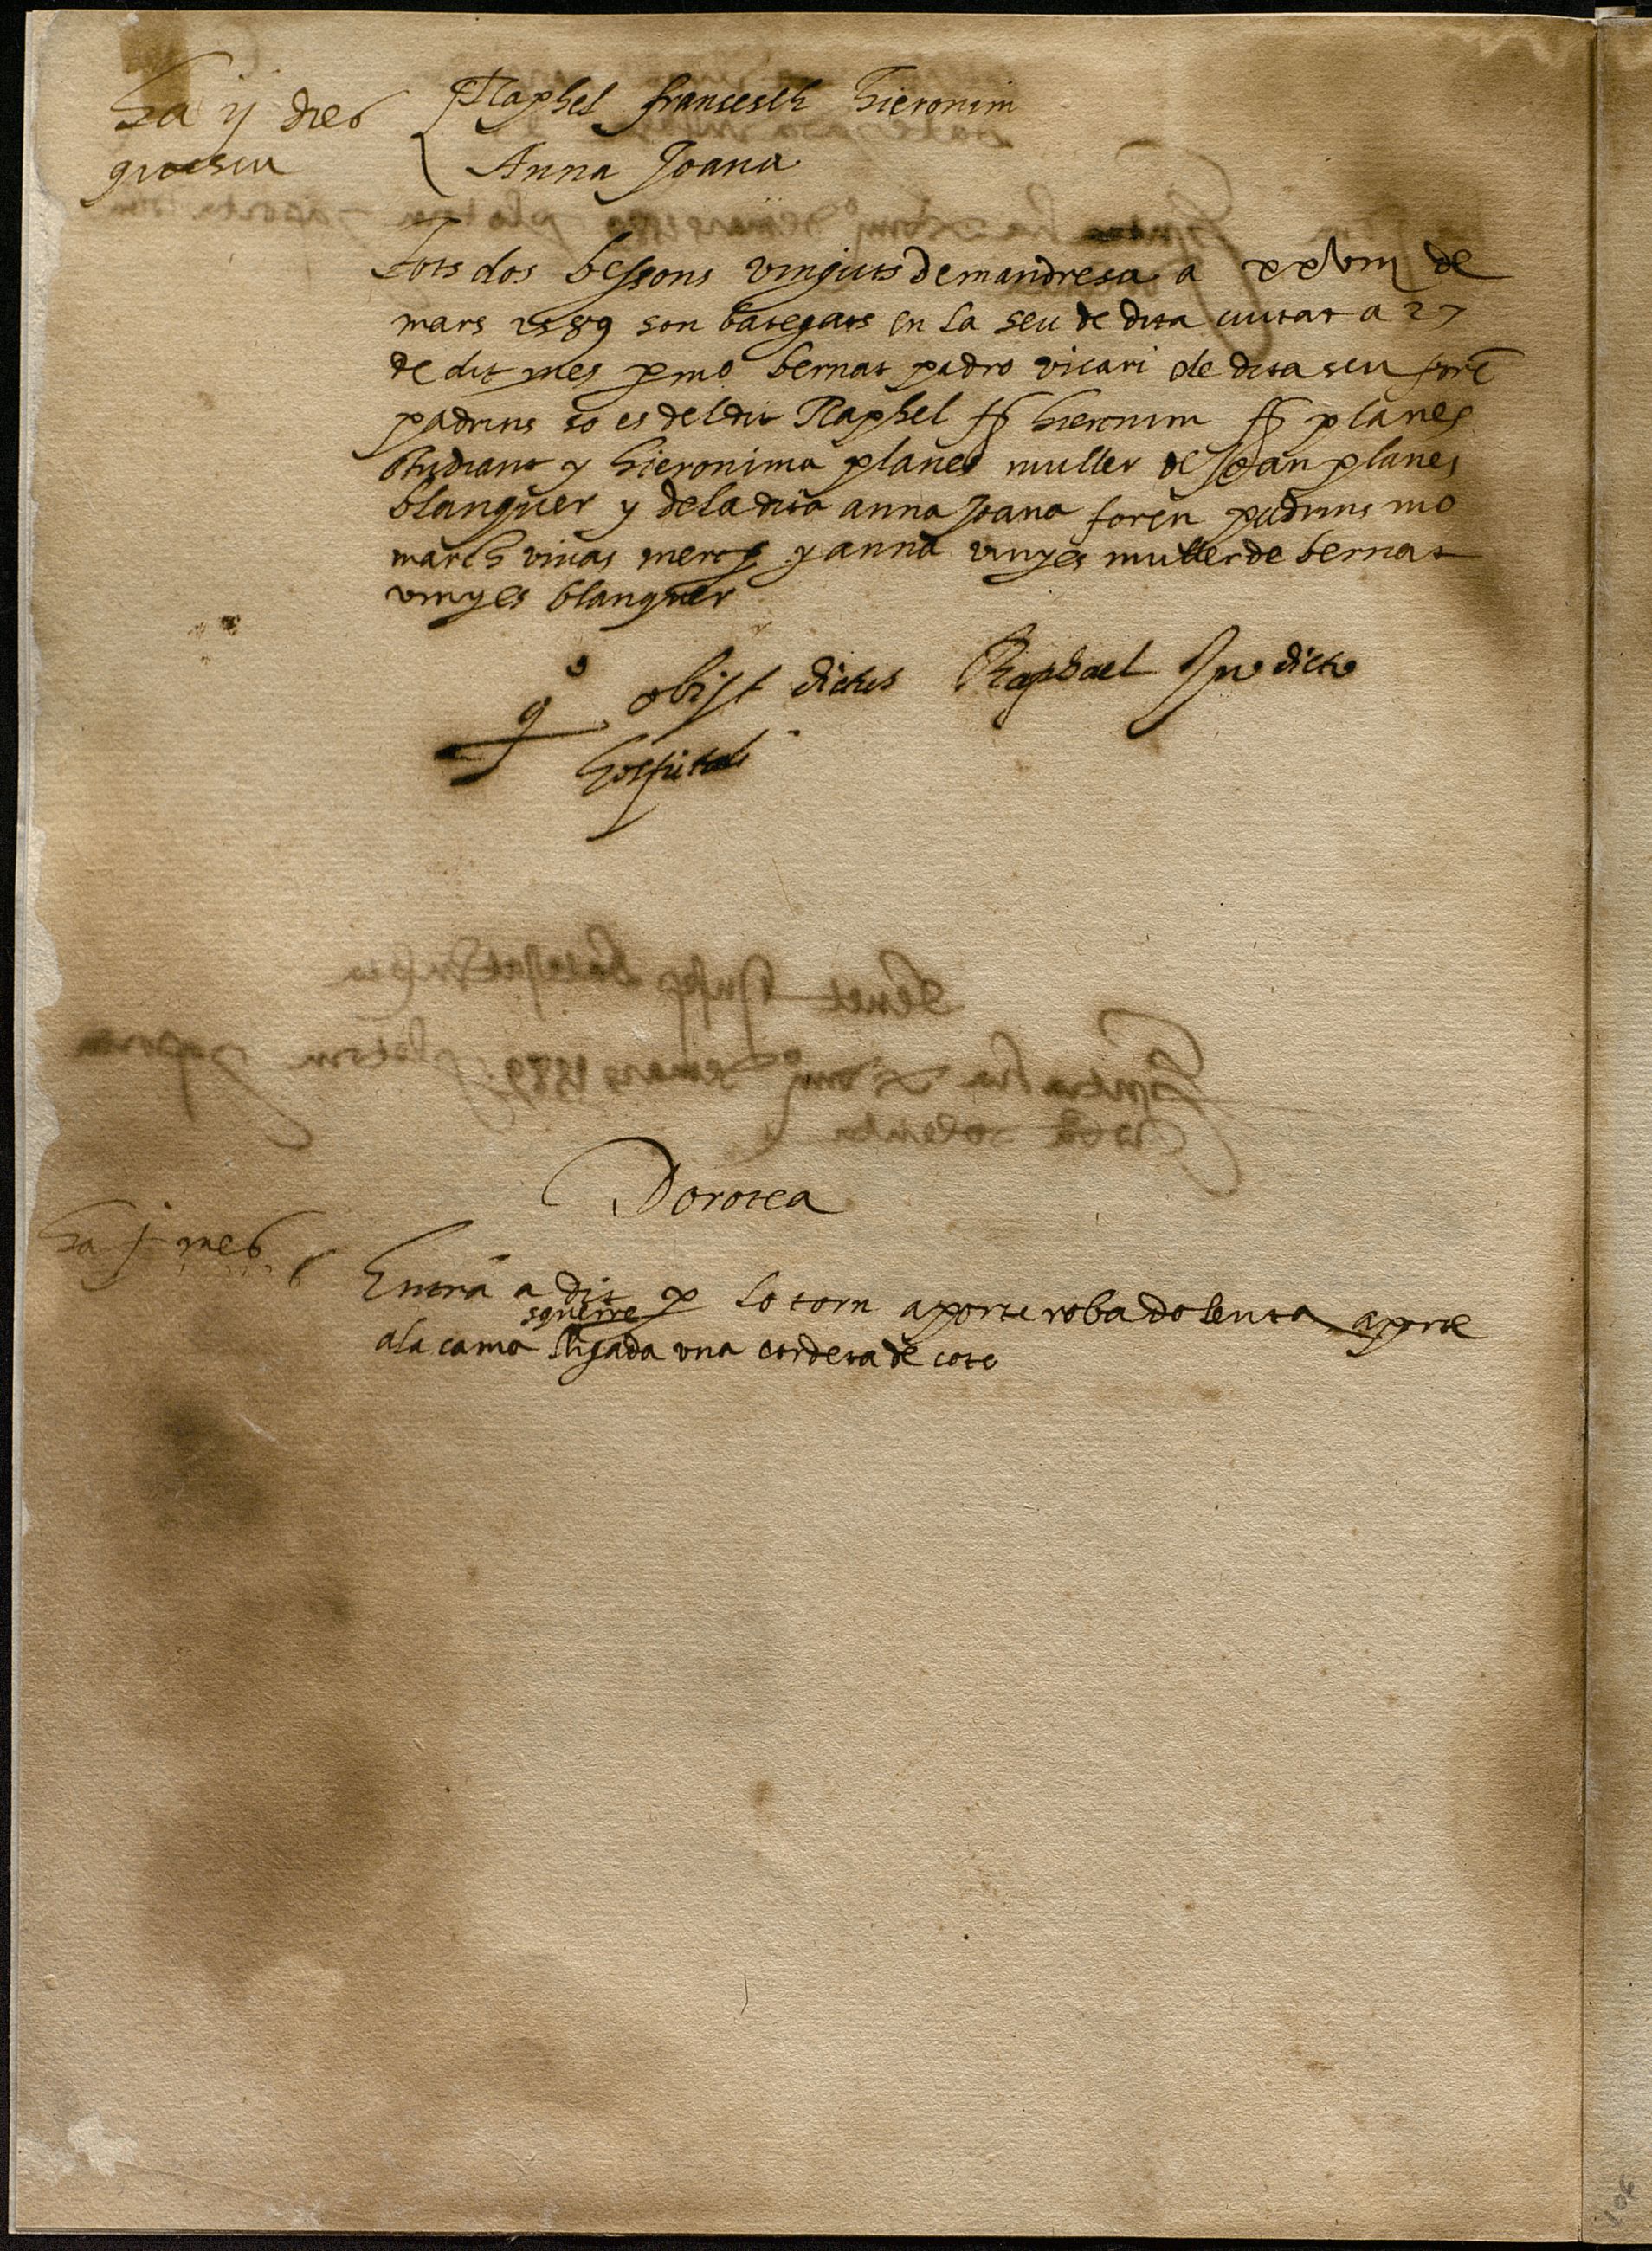 ha ij dies
que seu
Raphel francesch hieronim
Anna Joana
tots dos bessons vinguts de mandresa a xxviiij de
mars 1589 son bategats en la seu de dita ciutat a 27
de dit mes p mo bernat padro vicari de dita seu forē
padrins so es del dit Raphel fs hieronim fs planes
studiant y hieronima planes muller de Joan planes
blanquer y de la dita anna Joana foren padrins mo
march vivas merce y anna vinyes muller de bernat
vinyes blanquer
obijt dictus Raphael In dicto
hospitali
Dorotea
ha j mes
Entrā a dit p lo torn aporte roba dolenta aporte
squerre
a la cama lligada una cordeta de coto